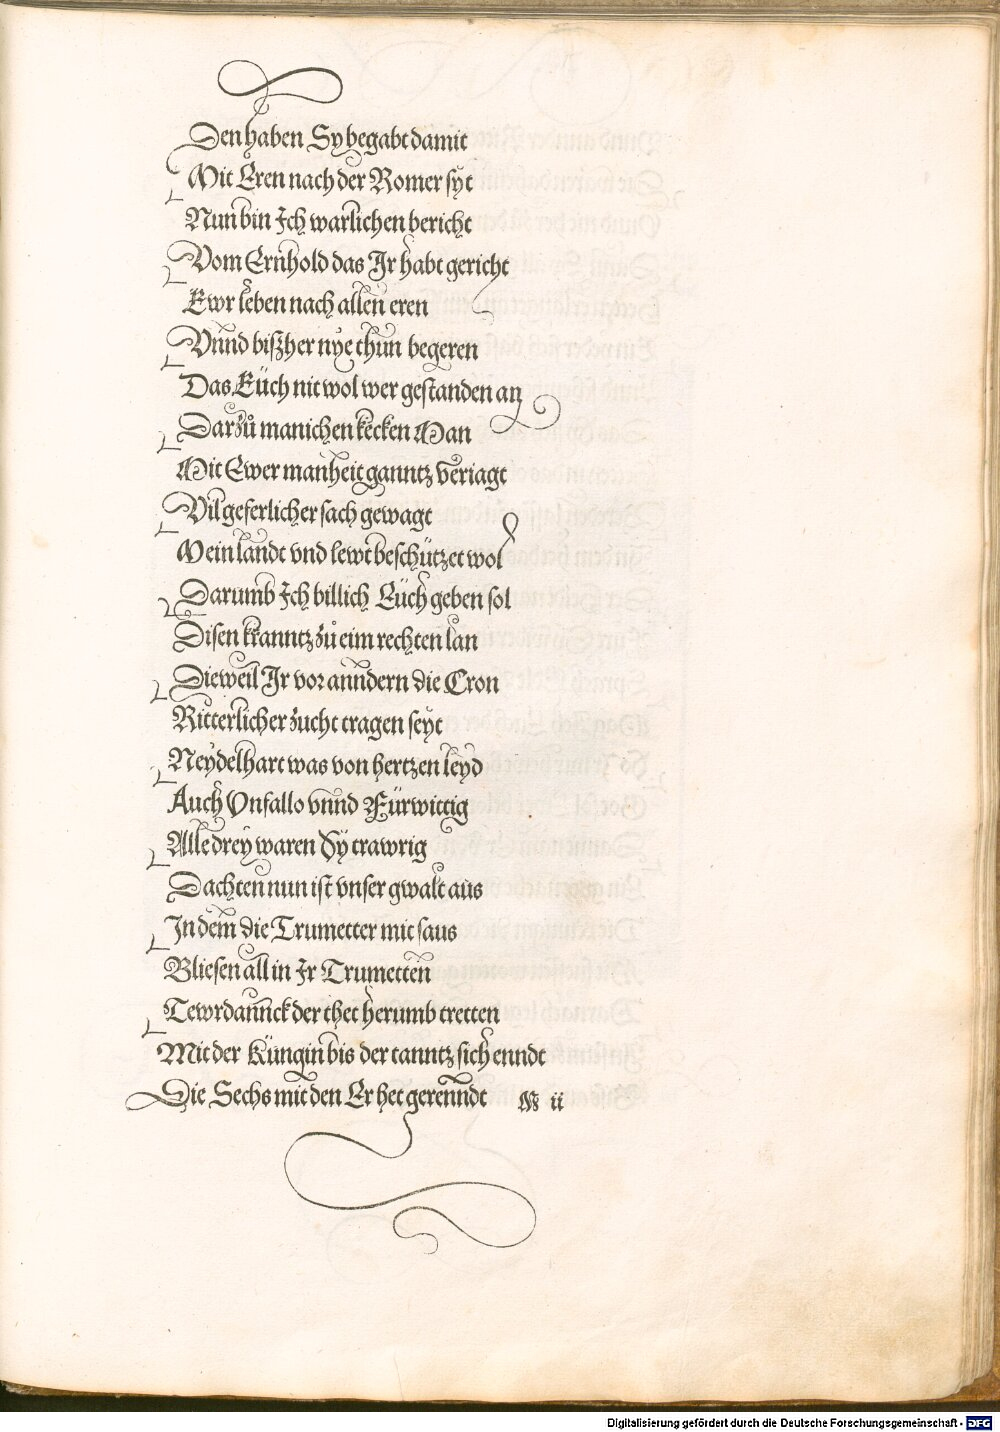 Den haben Sy begabt damit
Mit Eren nach der Romer syt
Nun bin Ich warlichen bericht
Vom Ernhold das Ir habt gericht
Ewr leben nach allen eren
Vnnd bißher nye thun begeren
Das Eüch nit wol wer gestanden an
Darzů manichen kecken Man
Mit Ewer manheit ganntz veriagt
Vil geferlicher sach gewagt
Mein landt vnd lewt beschützet wol
Darumb Ich billich Eüch geben sol
Disen kranntz zů eim rechten lan
Dieweil Ir vor anndern die Cron
Ritterlicher zucht tragen seyt
Neydelhart was von hertzen leyd
Auch Vnfallo vnnd Fürwittig
Alle drey waren Sy trawrig
Dachten nun ist vnser gwalt aus
In dem die Trumetter mit saus
Bliesen all in Ir Trumetten
Tewrdannck der thet herumb tretten
Mit der Küngin bis der tanntz sich enndt
Die Sechs mit den Er het gerenndt ii
Digitalisierung gefördert durch die Deutsche Forschungsgemeinschaft - DFG